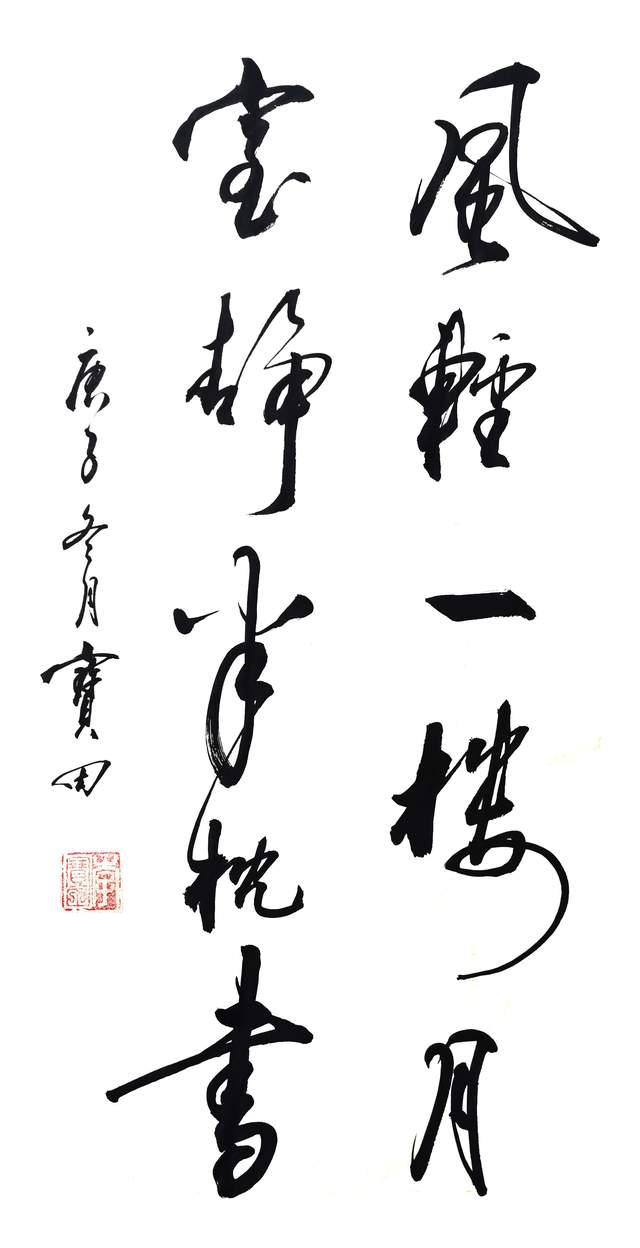 風輕一樓月
室靜半枕書
庚子冬月寶田